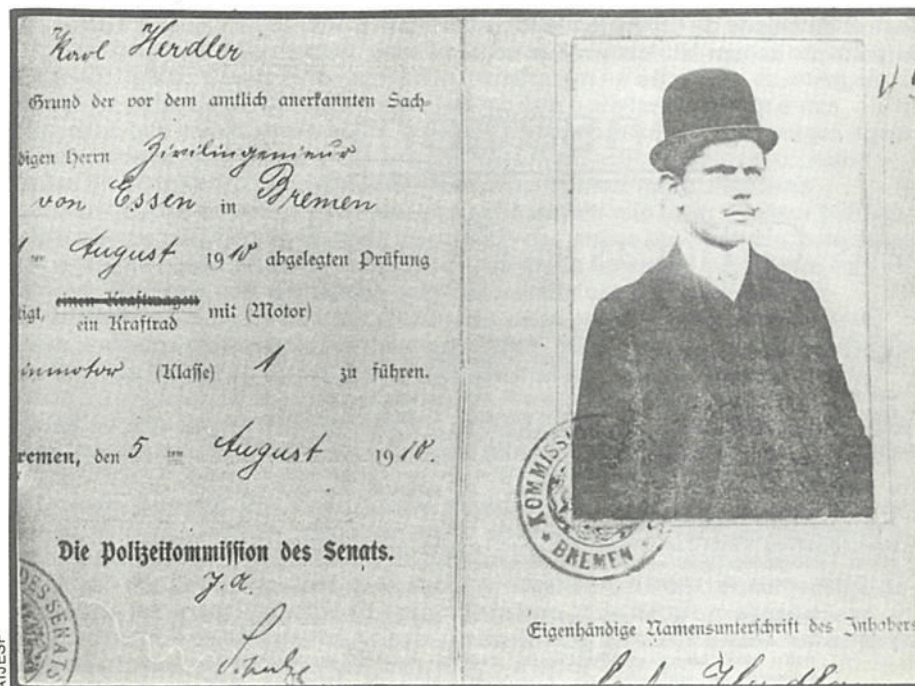 Karl Herdler
Grund der vor dem amtlich anerkannten Sach-
digen Herrn Zivilingenieur
von Essen in Bremen
ten August 1910 abgelegten Prüfung
tigt, einen Kraftwagen
ein Kraftrad mit (Motor)
inmotor (Klasse) 1 zu führen.
remen, den 5 ten August 1910.
Die Polizeikommission des Senats.
J. A.
DES SENATS
KOMMISS
BREMEN
Eigenhändige Namensunterschrift des Inhabers